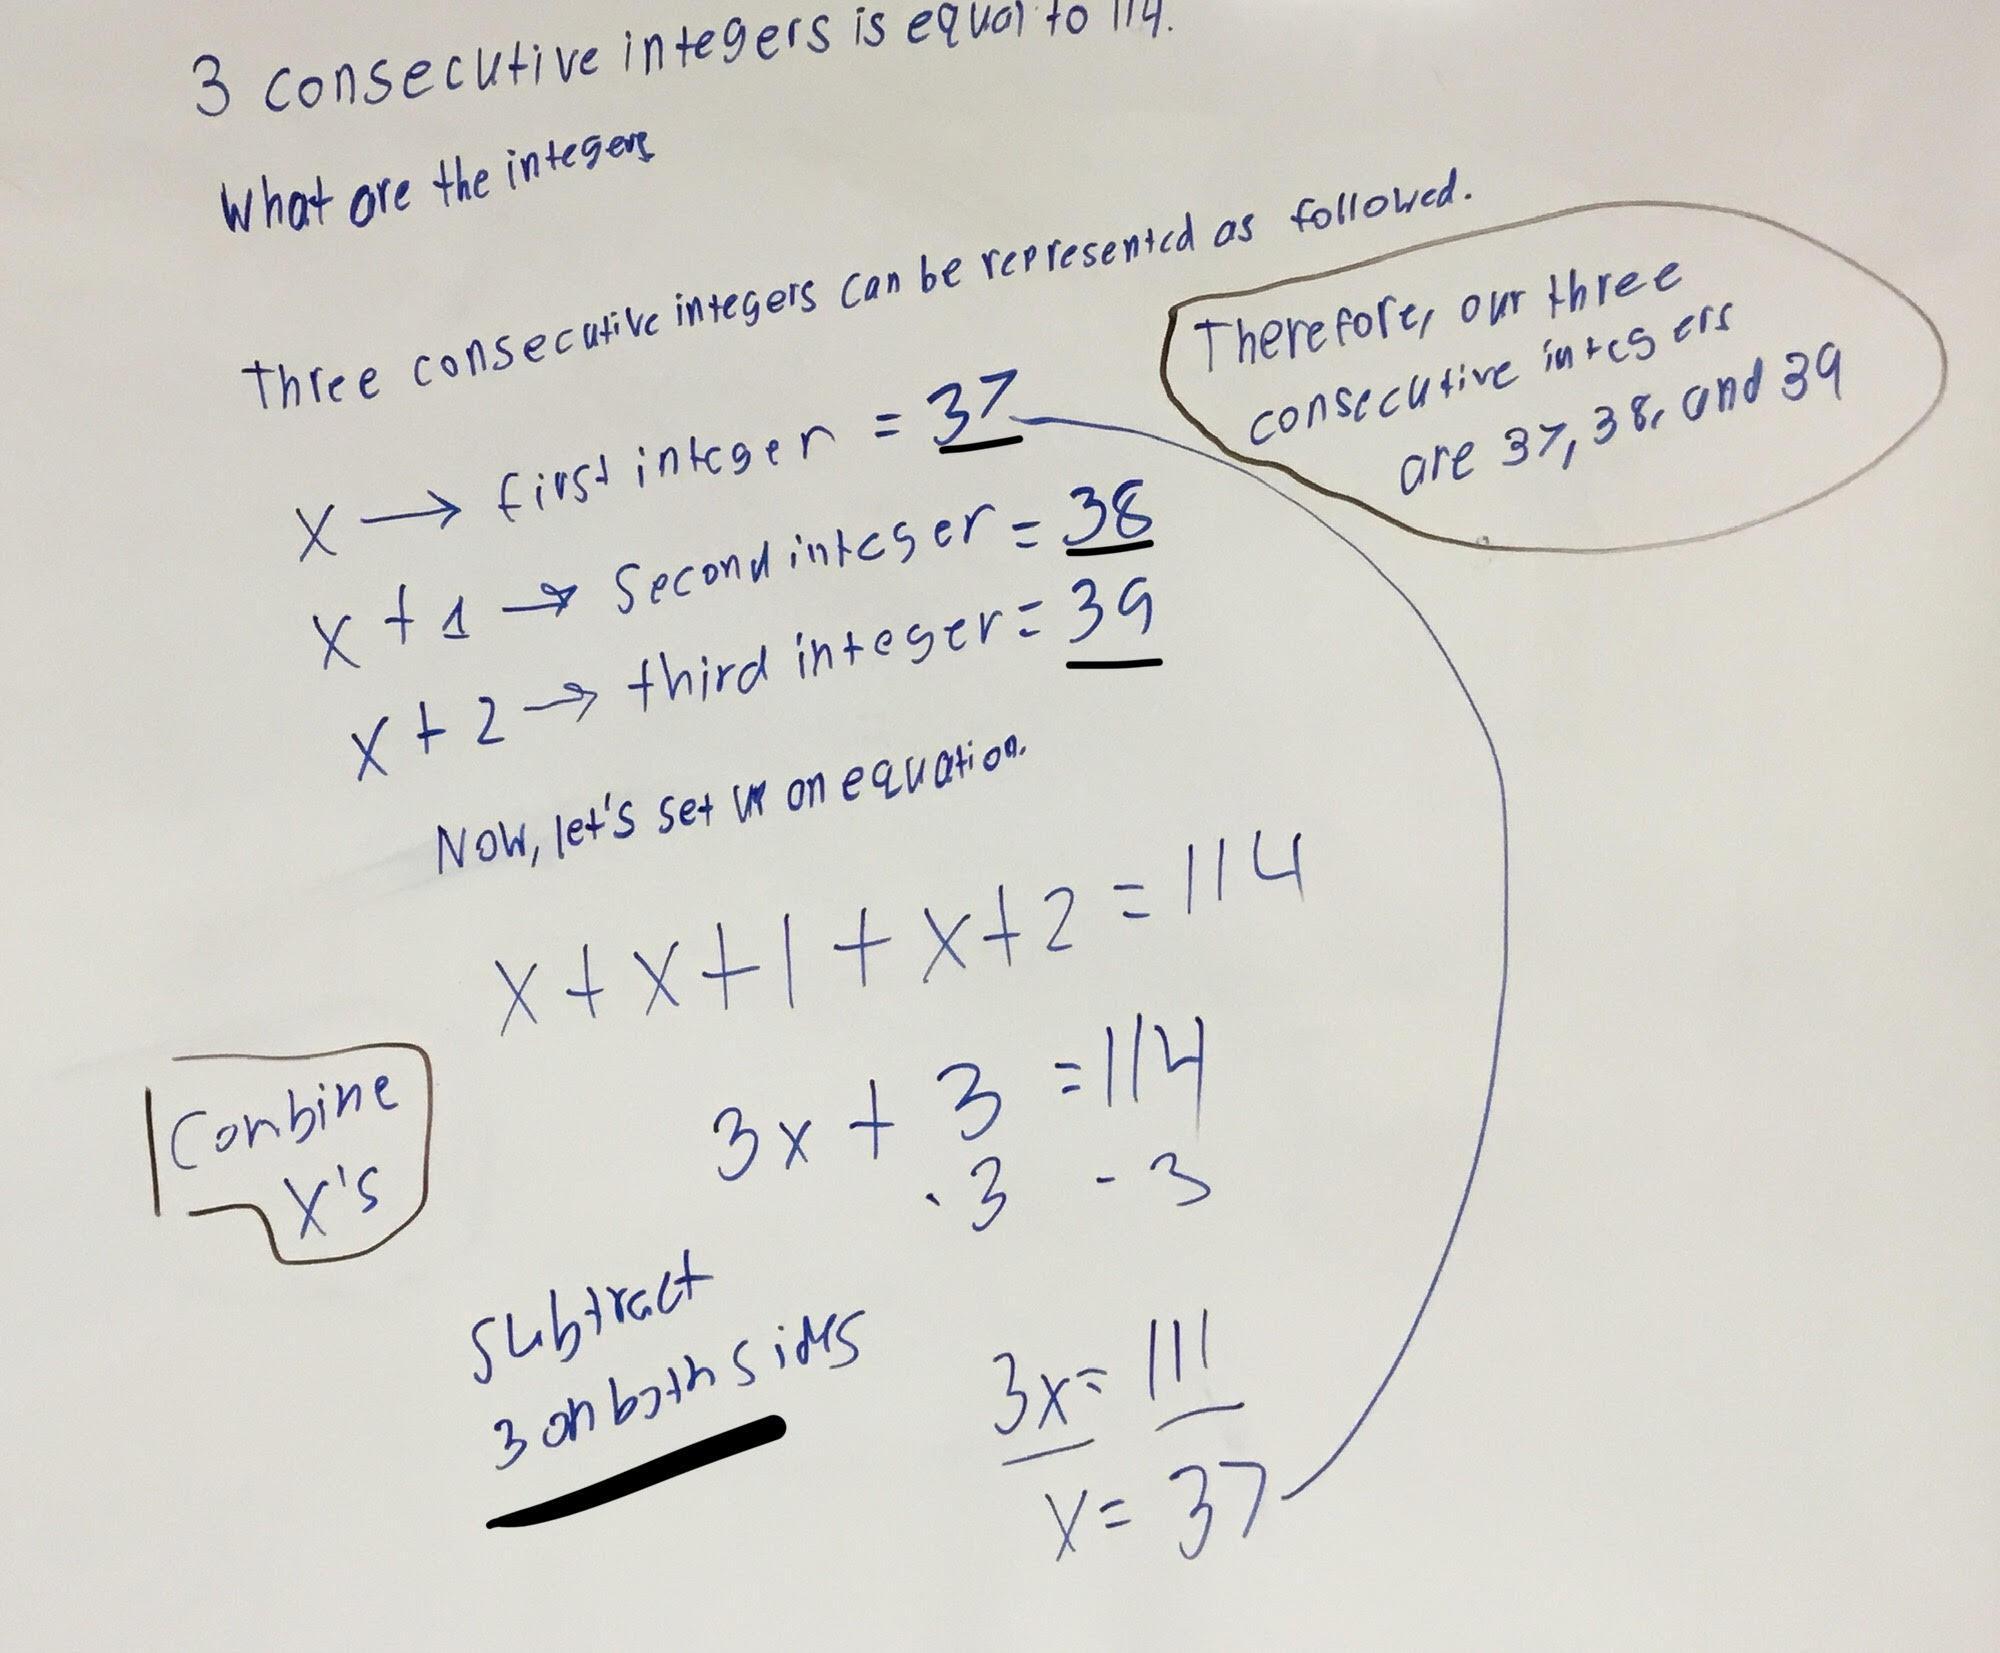 3 consecutive integers is equal to 114.
What are the integers
Three consecutive integers can be represented as followed.
x → first integer = 37
x + 1 → Second integer = 38
x + 2 → third integer = 39
Therefore, our three
consecutive integers
are 37, 38, and 39
Now, let's set up an equation.
x + x + 1 + x + 2 = 114
Combine
x's
3x + 3 = 114
- 3 - 3
Subtract
3 on both sides
3x = 111
x = 37